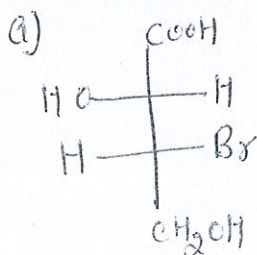 a)
COOH
HO H
H Br
CH2OH